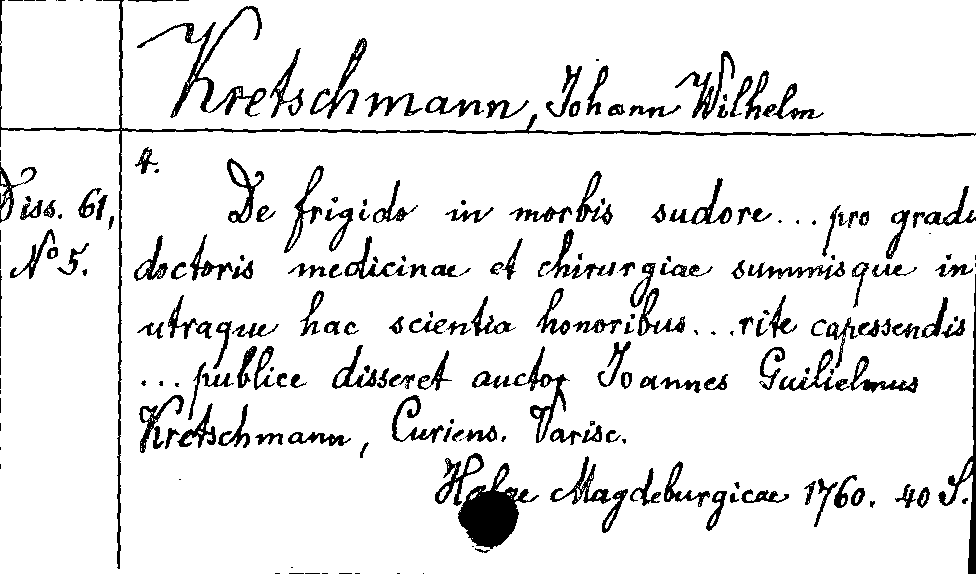 Kretschmann, Johann Wilhelm
4.
Diss. 61,
No 5.
De frigido in morbis sudore... pro gradu
doctoris medicinae et chirurgiae summisque in
utraque hac scientia honoribus... rite capessendis
... publice disseret auctor Joannes Guilielmus
Kretschmann, Curiens. Varisc.
Halae Magdeburgicae 1760. 40 S.